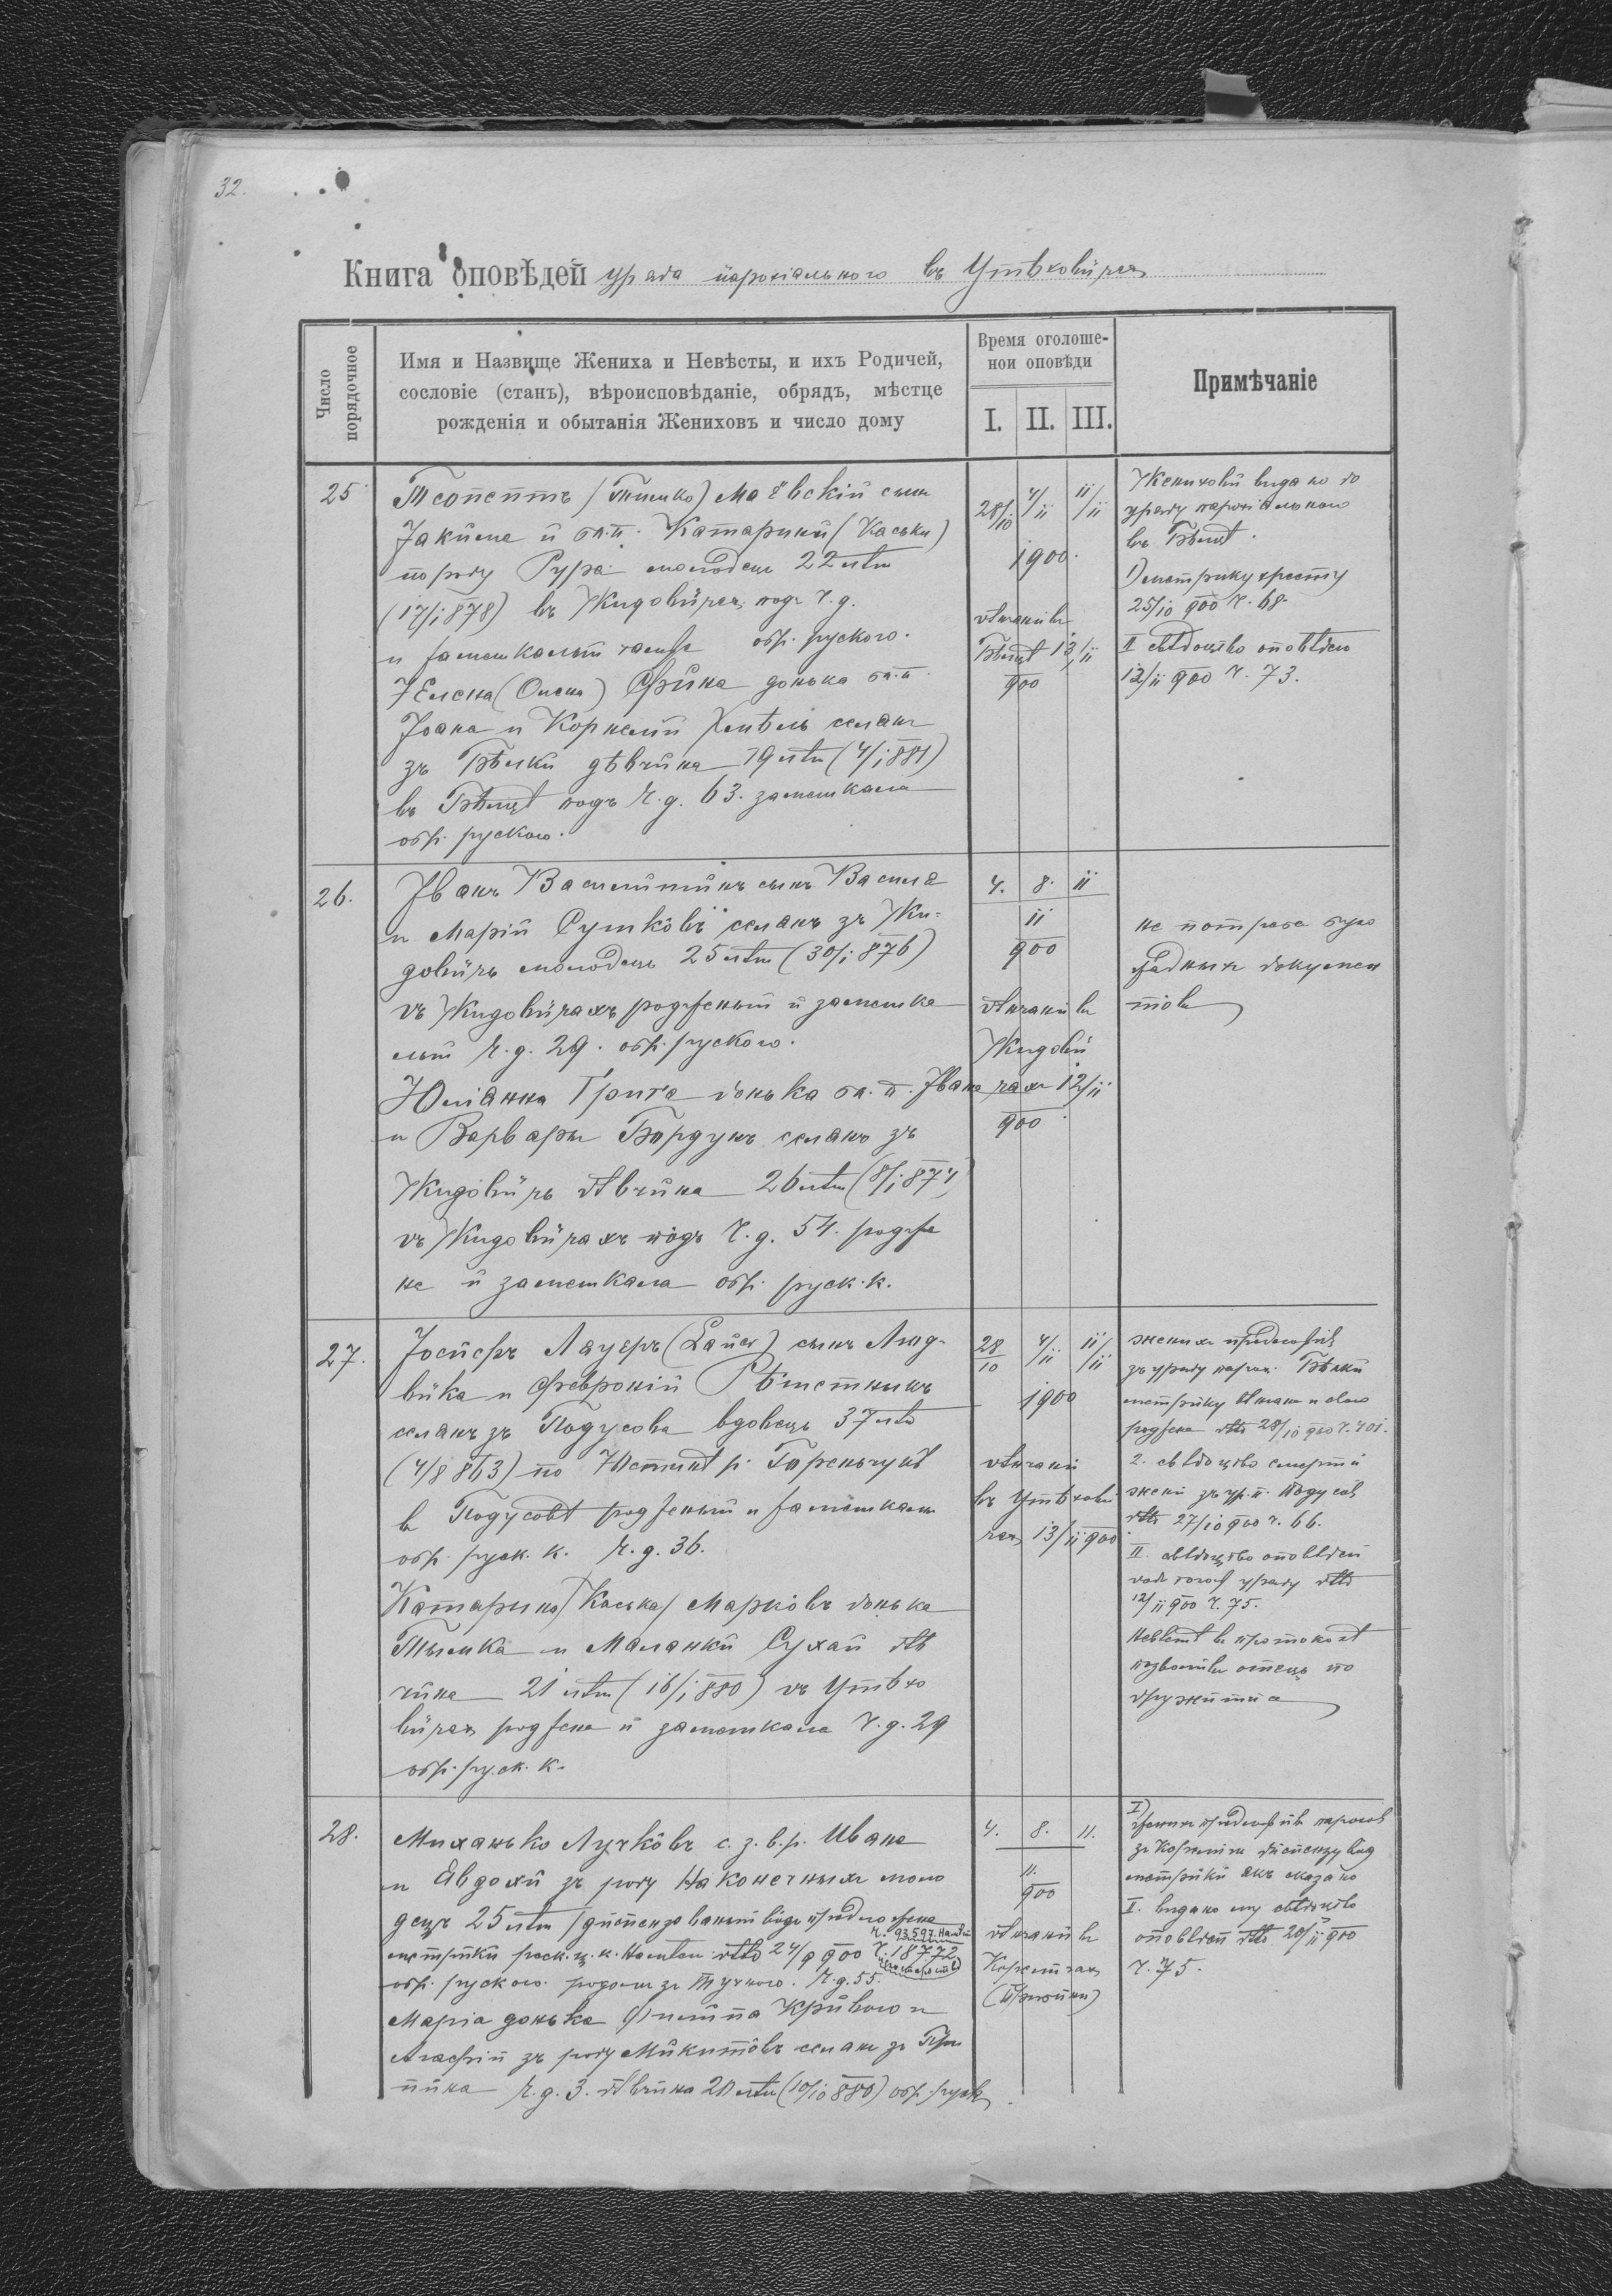 32.
Книга оповѣдей уряда парохіяльного въ Утѣховичах
Число порядочное
Имя и Назвище Жениха и Невѣсты, и ихъ Родичей,
сословіе (станъ), вѣроисповѣданіе, обрядъ, мѣстце
рожденія и обытанія Жениховъ и число дому
Время оголоше-
нои оповѣди
I. II. III.
Примѣчаніе
25
(Тимко) Маёвскій сынъ
Якима и бл.п. Катарини (Каськи)
по роду Гура молодець 22 лѣтъ
(17/1 878) въ Жидовичах подъ ч.д.
и замешкалый тамже обр. руского.
Елена (Олена) донька бл.п.
Іоана и Корнеліи Хмѣль селянъ
зъ Бѣлки дѣвчина 19 лѣтъ (4/1 881)
въ Бѣлцѣ подъ ч.д. 63. замешкала
обр. руского.
28/10 4/11 11/11
1900.
вѣнчани въ
Бѣлцѣ 13/11
900
Женихови видано до
уряду парохіяльного
въ Бѣлцѣ.
1) метрику хресту
25/10 900 ч. 68.
II свѣдоцтво оповѣдей
12/11 900 ч. 73.
26.
Іванъ Василишинъ сынъ Василя
и Маріи Сушковъ селянъ зъ Жи-
довичъ молодець 25 лѣтъ (30/1 876)
въ Жидовичахъ родженый и замешка
лый ч.д. 29. обр. руского.
Юліанна Грига донька бл.п. Івана
и Варвары Бордунъ селянъ зъ
Жидовичъ дѣвчина 26 лѣтъ (8/1 874)
въ Жидовичахъ подъ ч.д. 54. родже
на и замешкала обр. руск. к.
4. 8. 11
11
900
вѣнчани въ
Жидови
чахъ 12/11
900
не потреба було
жадныхъ докумен
товъ
27.
Іосифъ Лауеръ сынъ Люд-
вика и Февроніи Рѣшетникъ
селянъ зъ Подусова вдовець 37 лѣтъ
(4/8 863) по Юстинѣ р.
в Подусовѣ родженый и замешкалый
обр. руск. к. ч.д. 36.
Катарина /Каська/ Марковъ донька
Тымка и Маланки Сухай дѣв
чина 21 лѣтъ (16/1 880) въ Утѣхо
вичах роджена и замешкала ч.д. 29
обр. руск. к.
28/10 4/11 11/11
1900
вѣнчани
въ Утѣхови
чах 13/11 900
жених предложивъ
зъ уряду парох. Бѣлки
метрику
родженя dtto 28/10 900 ч. 401.
2. свѣдоцтво смерти
жени зъ ур. п. Подусов
dtto 27/10 900 ч. 66.
II. свѣдоцтво оповѣдей
уряду dtto
12/11 900 ч. 75.
Невѣстѣ въ протоколѣ
позволивъ отець по
дружитися
28.
Миханько Лучковъ с.з.в.р. Ивана
и Евдохіи зъ роду Наконечныхъ моло
децъ 25 лѣтъ /диспензованый водъ предложеня
ч. 93597
метрики рескр. ц.к. Намѣст. dtto 24/9 900 ч. 18772
обр. руского родомъ зъ Тучного. ч.д. 55.
Марія донька Филипа Кривого и
Агафіи зъ роду Микитовъ селянъ зъ
ч.д. 3. дѣвчина 20 лѣтъ (10/10 880) обр. руск.
4. 8. 11.
11.
900
вѣнчани въ
Кореличах
I)
жених предложивъ
диспензу водъ
метрики якъ сказано
I. видано му свѣдоцтво
оповѣдей dtto 20/11 900
ч. 75.